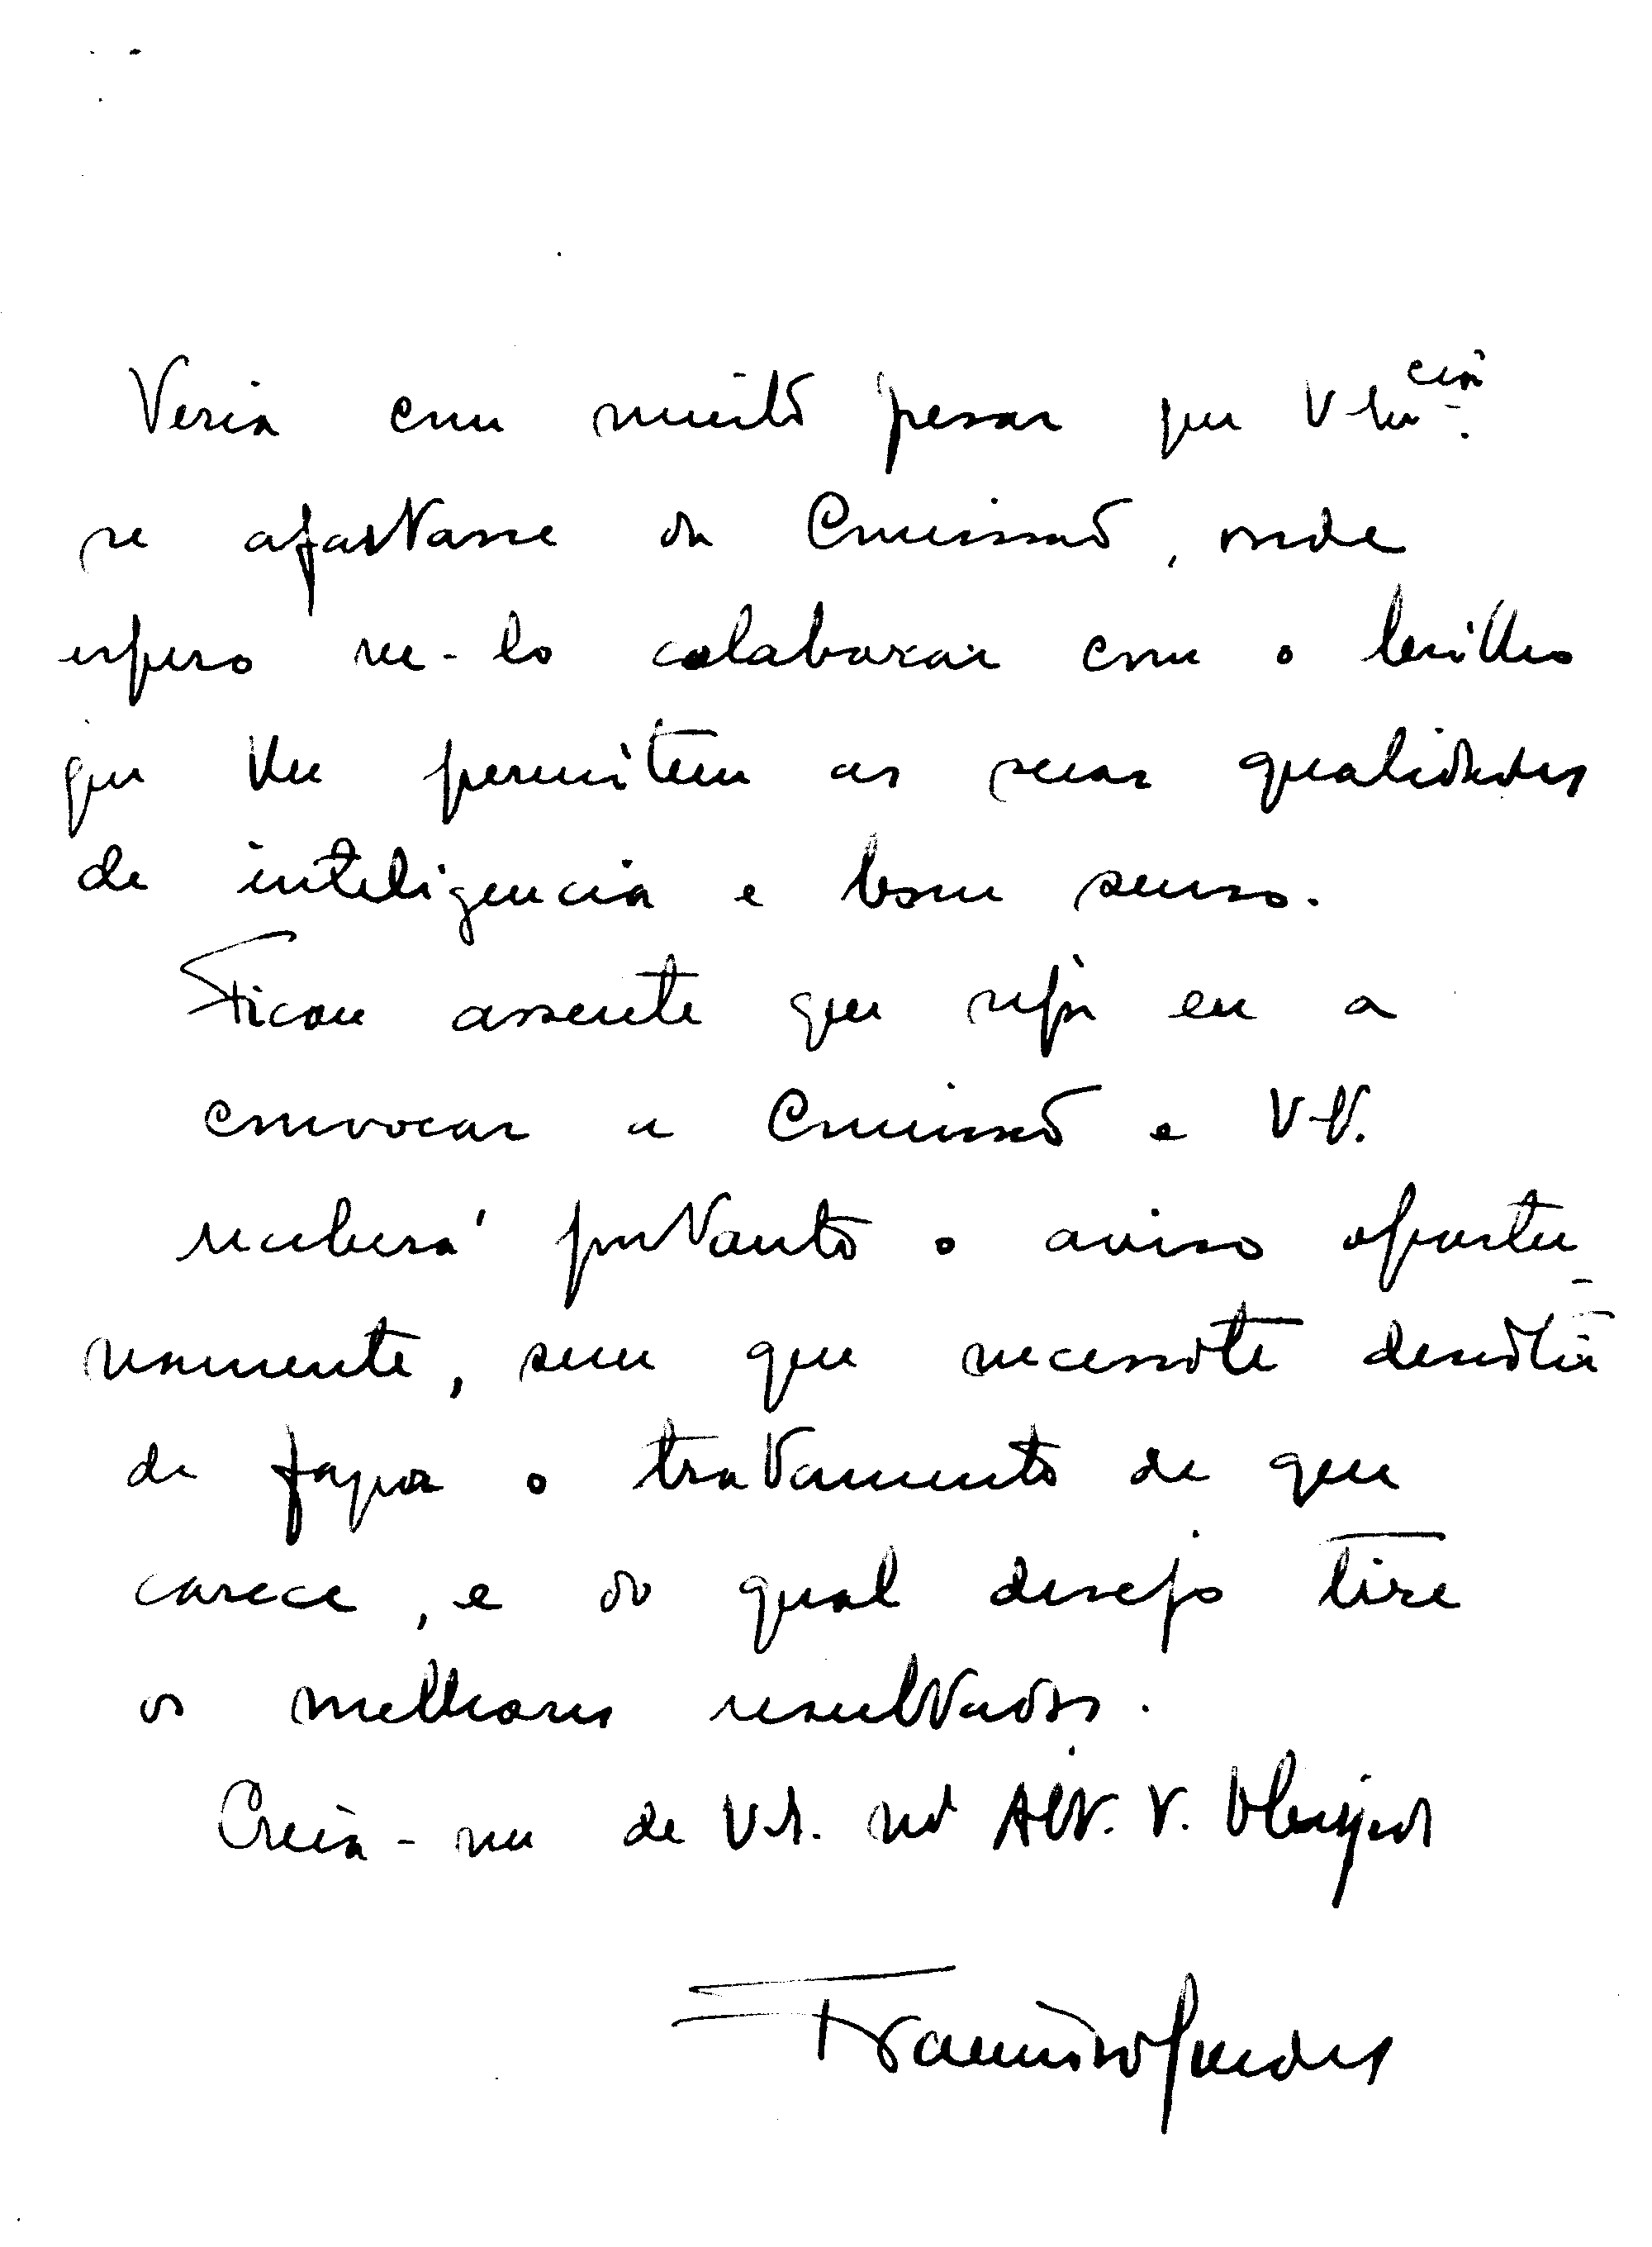 Veria com muito pesar que V. Ex.cia
se afastasse da Comissão, onde
espero ve-lo colaborar com o brilho
que lhe permitem as suas qualidades
de inteligencia e bom senso.
Ficou assente que seja eu a
convocar a Comissão e V. Ex.
receberá portanto o aviso oportu
namente, sem que necessite desistir
de fazer o tratamento de que
carece, e do qual desejo tire
os melhores resultados.
Creia-me de V. Ex. mt At. V. Obrigado
Francisco Guedes